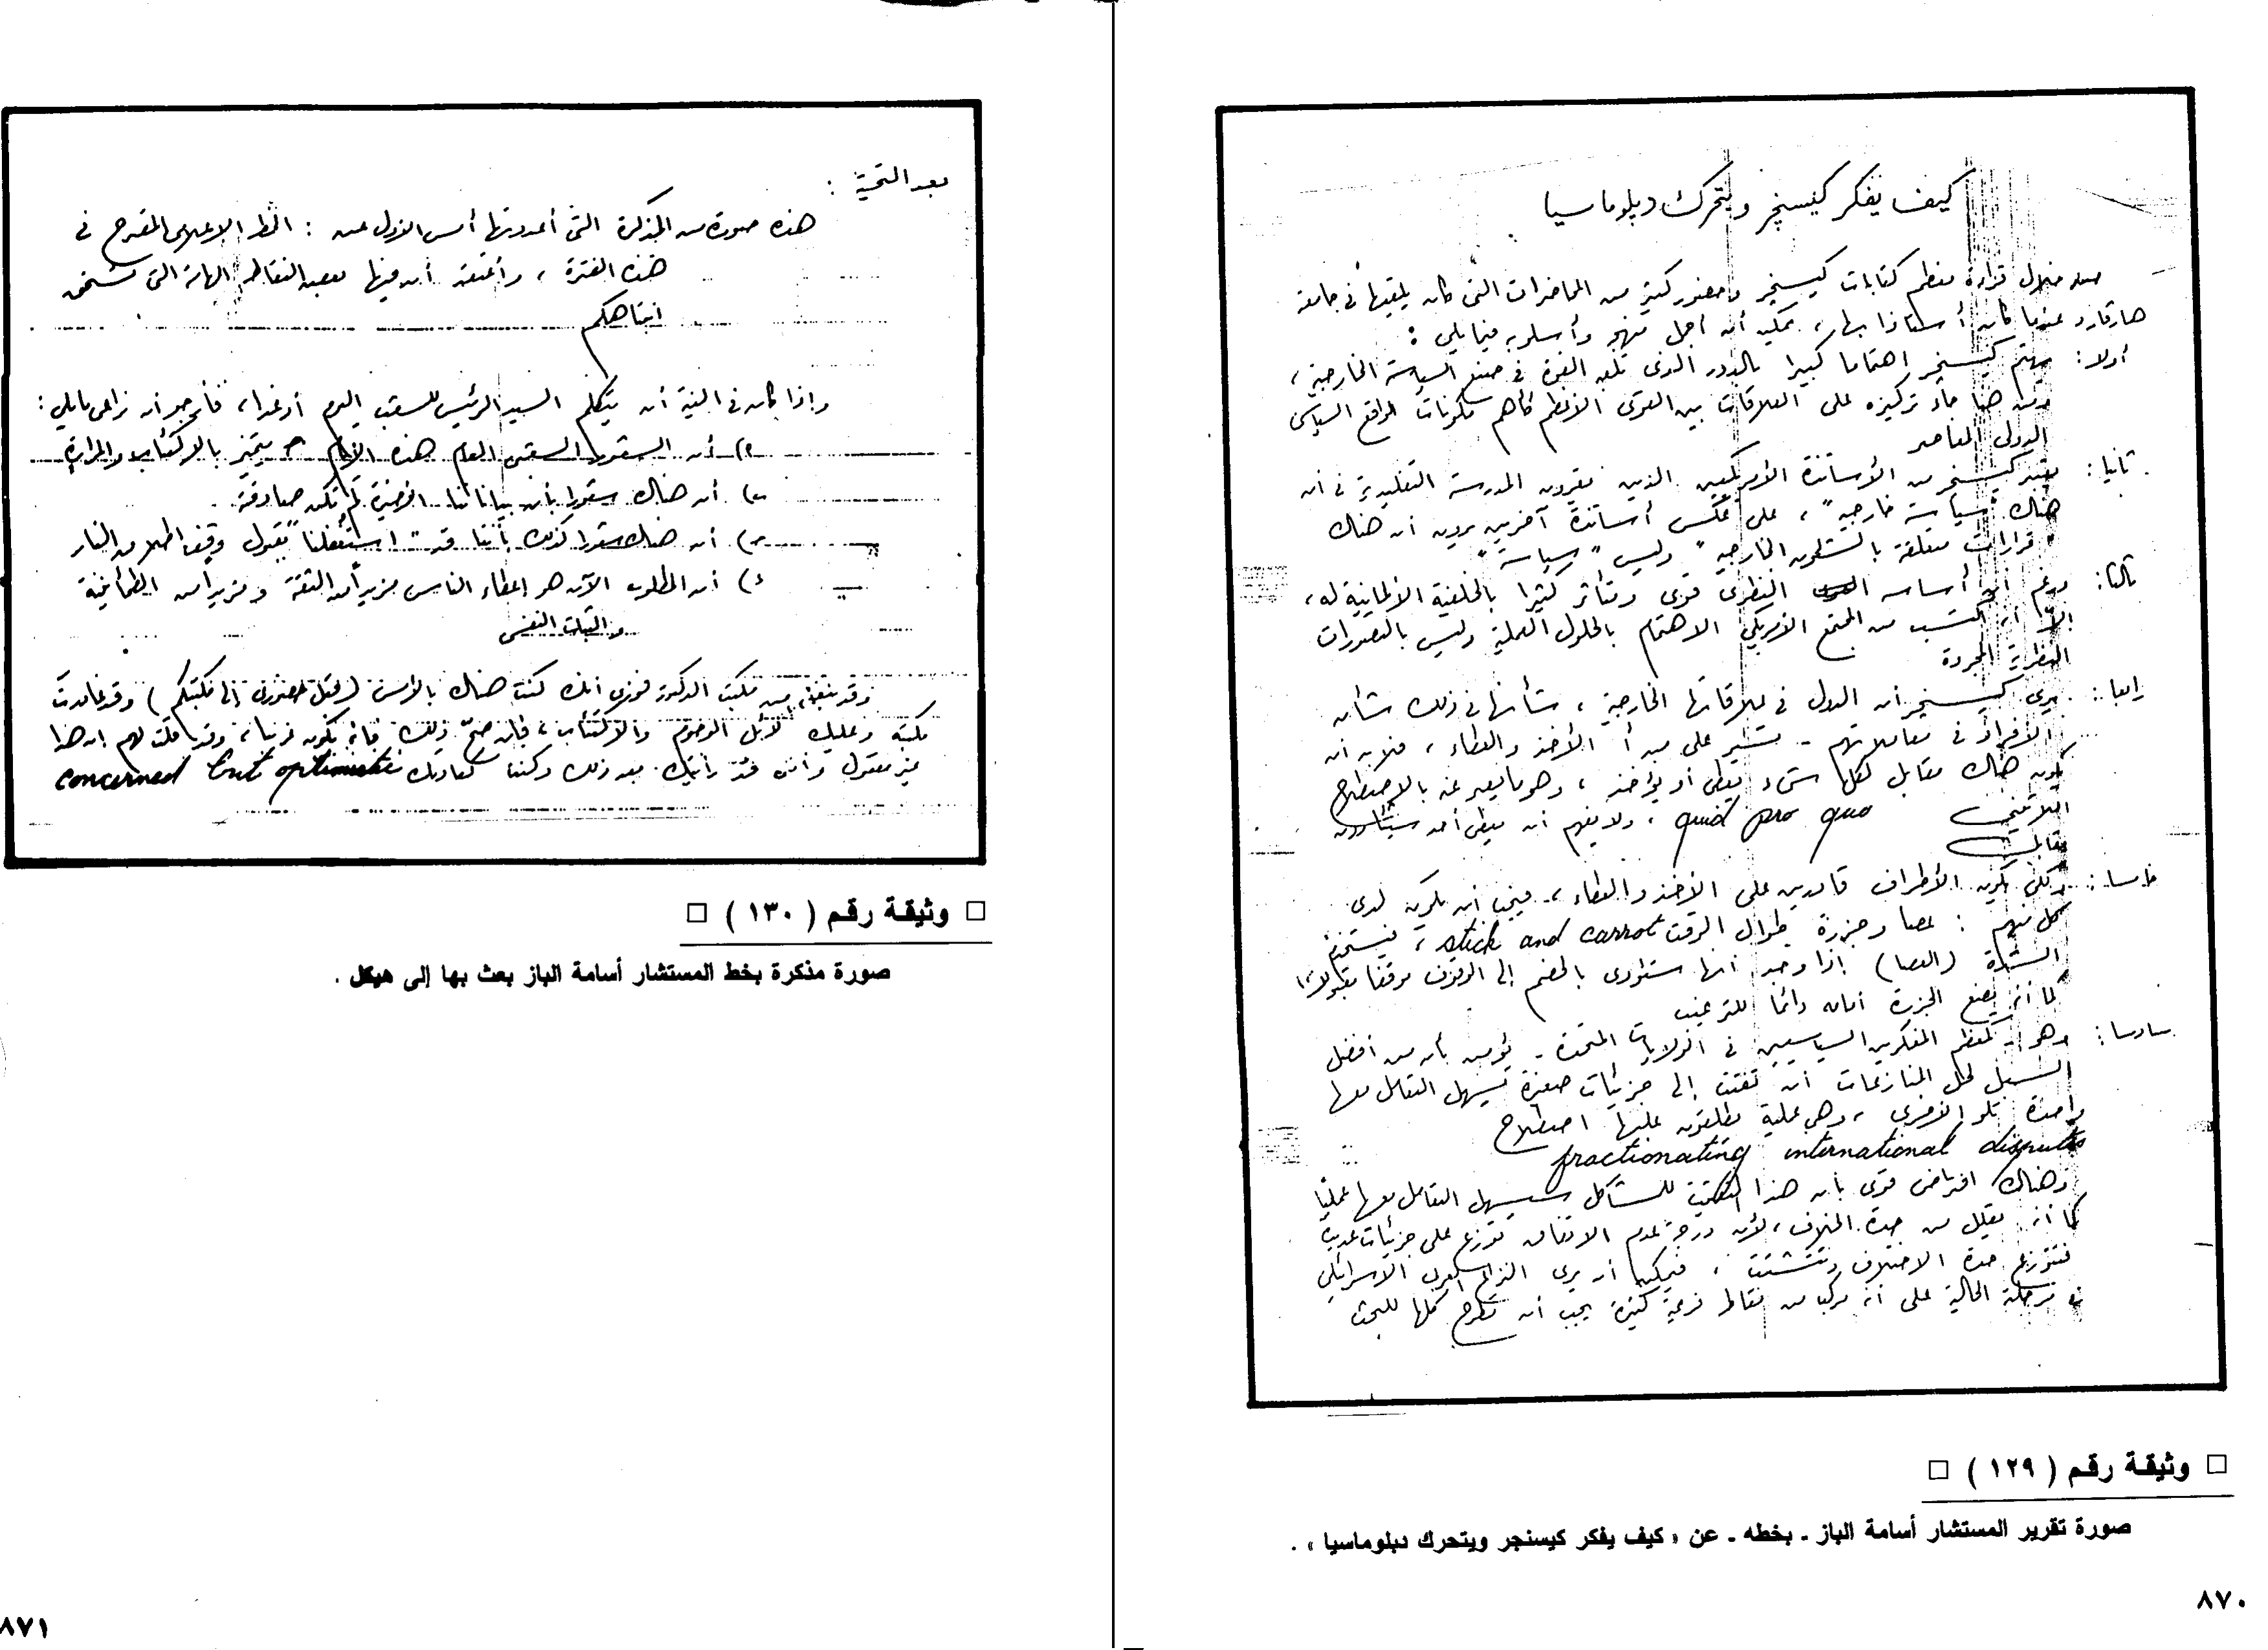 كيف يفكر كيسنجر ويتحرك دبلوماسيا
من خلال قراءة معظم كتابات كيسنجر وحضور كثير من المحاضرات التى كان يلقيها فى جامعة
هارڤارد عندما كان أستاذا بها، يمكن أن أجمل منهجه وأسلوبه فيما يلى :
أولا : يهتم كيسنجر اهتماما كبيرا بالدور الذى تلعبه القوة فى صنع السياسة الخارجية ،
ومن هنا جاء تركيزه على العلاقات بين القوى الأعظم كأهم مكونات الواقع السياسى
الدولى المعاصر
ثانيا : يعتبر كيسنجر من الأساتذة الأمريكيين الذين يقرون المدرسة التقليدية فى أن
هناك "سياسة خارجية" ، على عكس أساتذة آخرين يرون أن هناك
"قرارات متعلقة بالشئون الخارجية" وليس "سياسة"
ثالثا : ورغم أن أساسه النظرى قوى ومتأثر كثيرا بالخلفية الألمانية له ،
إلا أنه اكتسب من المجتمع الأمريكى الاهتمام بالحلول العملية وليس بالتصورات
النظرية المجردة
رابعا : يرى كيسنجر أن الدول فى علاقاتها الخارجية ، شأنها فى ذلك شأن
الأفراد فى معاملاتهم - تسير على مبدأ الأخذ والعطاء ، فلابد أن
يكون هناك مقابل لكل شىء يعطى أو يؤخذ ، وهو ما يعبر عنه بالاصطلاح
اللاتينى quid pro quo ، ولا يفهم أن يعطى أحد شيئا دون
مقابل
خامسا : ولكى يكون الأطراف قادرين على الأخذ والعطاء ، فيجب أن يكون لدى
كل منهم : عصا وجزرة طوال الوقت stick and carrot ، فيستخدم
الشدة (العصا) إذا وجد أنها ستؤدى بالخصم إلى الوقوف موقفا مقبولا،
كما أنه يضع الجزرة أمامه دائما للترغيب
سادسا : وهو - كمعظم المفكرين السياسيين فى الولايات المتحدة - يؤمن بأن من أفضل
السبل لحل المنازعات أن تفتت إلى جزئيات صغيرة يسهل التعامل معها
واحدة تلو الأخرى ، وهى عملية يطلقون عليها اصطلاح
fractionating international disputes
وهناك افتراض قوى بأن هذا التفتيت للمشاكل سيسهل التعامل معها عمليا
كما أنه يقلل من حدة الخلاف ، لأن درجة عدم الاتفاق تتوزع على جزئيات عديدة
فتتوزع حدة الاختلاف وتتشتت ، فيمكن أن يرى النزاع العربى الاسرائيلى
فى مرحلته الحالية على أنه مركب من نقاط فرعية كثيرة يجب أن تطرح كلها للبحث
□ وثيقة رقم ( ١٢٩ ) □
صورة تقرير المستشار أسامة الباز ـ بخطه ـ عن « كيف يفكر كيسنجر ويتحرك دبلوماسيا » .
٨٧٠
بعد التحية :
هذه صورة من المذكرة التى أعددتها أمس الأول عن : الخط الإعلامى المقترح فى
هذه الفترة ، وأعتقد أن فيها بعض النقاط الهامة التى تستحق
انتباهكم
وإذا كان فى النية أن يتكلم السيد الرئيس للشعب اليوم أو غدا، فأرجو أن نراعى ما يلى :
١) أن الشعور الشعبى العام هذه الأيام يتميز بالاكتئاب والمرارة
٢) أن هناك شعورا بأن بياناتنا الأخيرة لم تكن صادقة
٣) أن هناك شعورا كذلك بأننا قد "استُغفلنا" بقبول وقف اطلاق النار
٤) أن المطلوب الآن هو إعطاء الناس مزيدا من الثقة ومزيدا من الطمأنينة
والثبات النفسى
وقد بلغنى من مكتب الدكتور فوزى أنك كنت هناك بالأمس (قبل حضورى إلى مكتبكم) وقد غادرت
مكتبه وعليك دلائل الوجوم والاكتئاب ، فإن صحّ ذلك فإنه يكون غريبا، وقد قلت لهم إن هذا
غير معقول وأننى قد رأيتك بعد ذلك وكنت كعادتك concerned but optimistic
□ وثيقة رقم ( ١٣٠ ) □
صورة مذكرة بخط المستشار أسامة الباز بعث بها إلى هيكل .
٨٧١